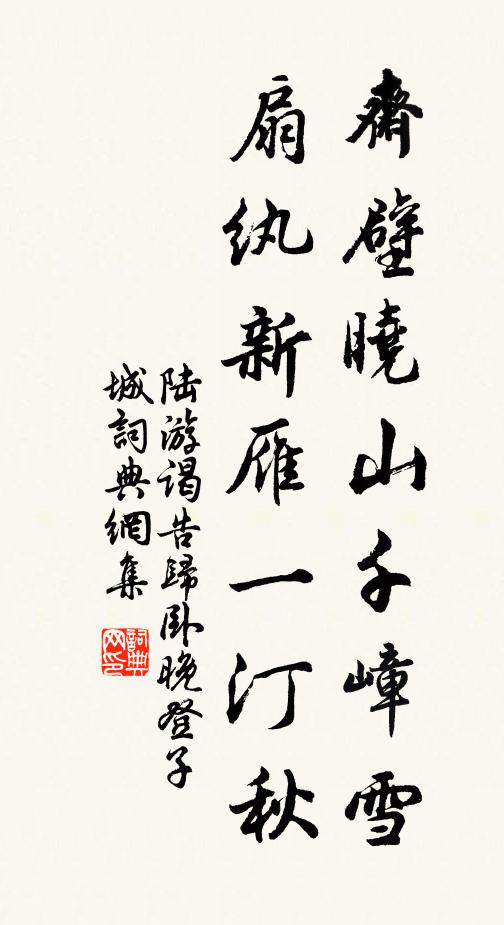 齋壁曉山千嶂雪
扇紈新雁一汀秋
陆游谒告歸卧晚登子
城詞典網集
詞典
网印